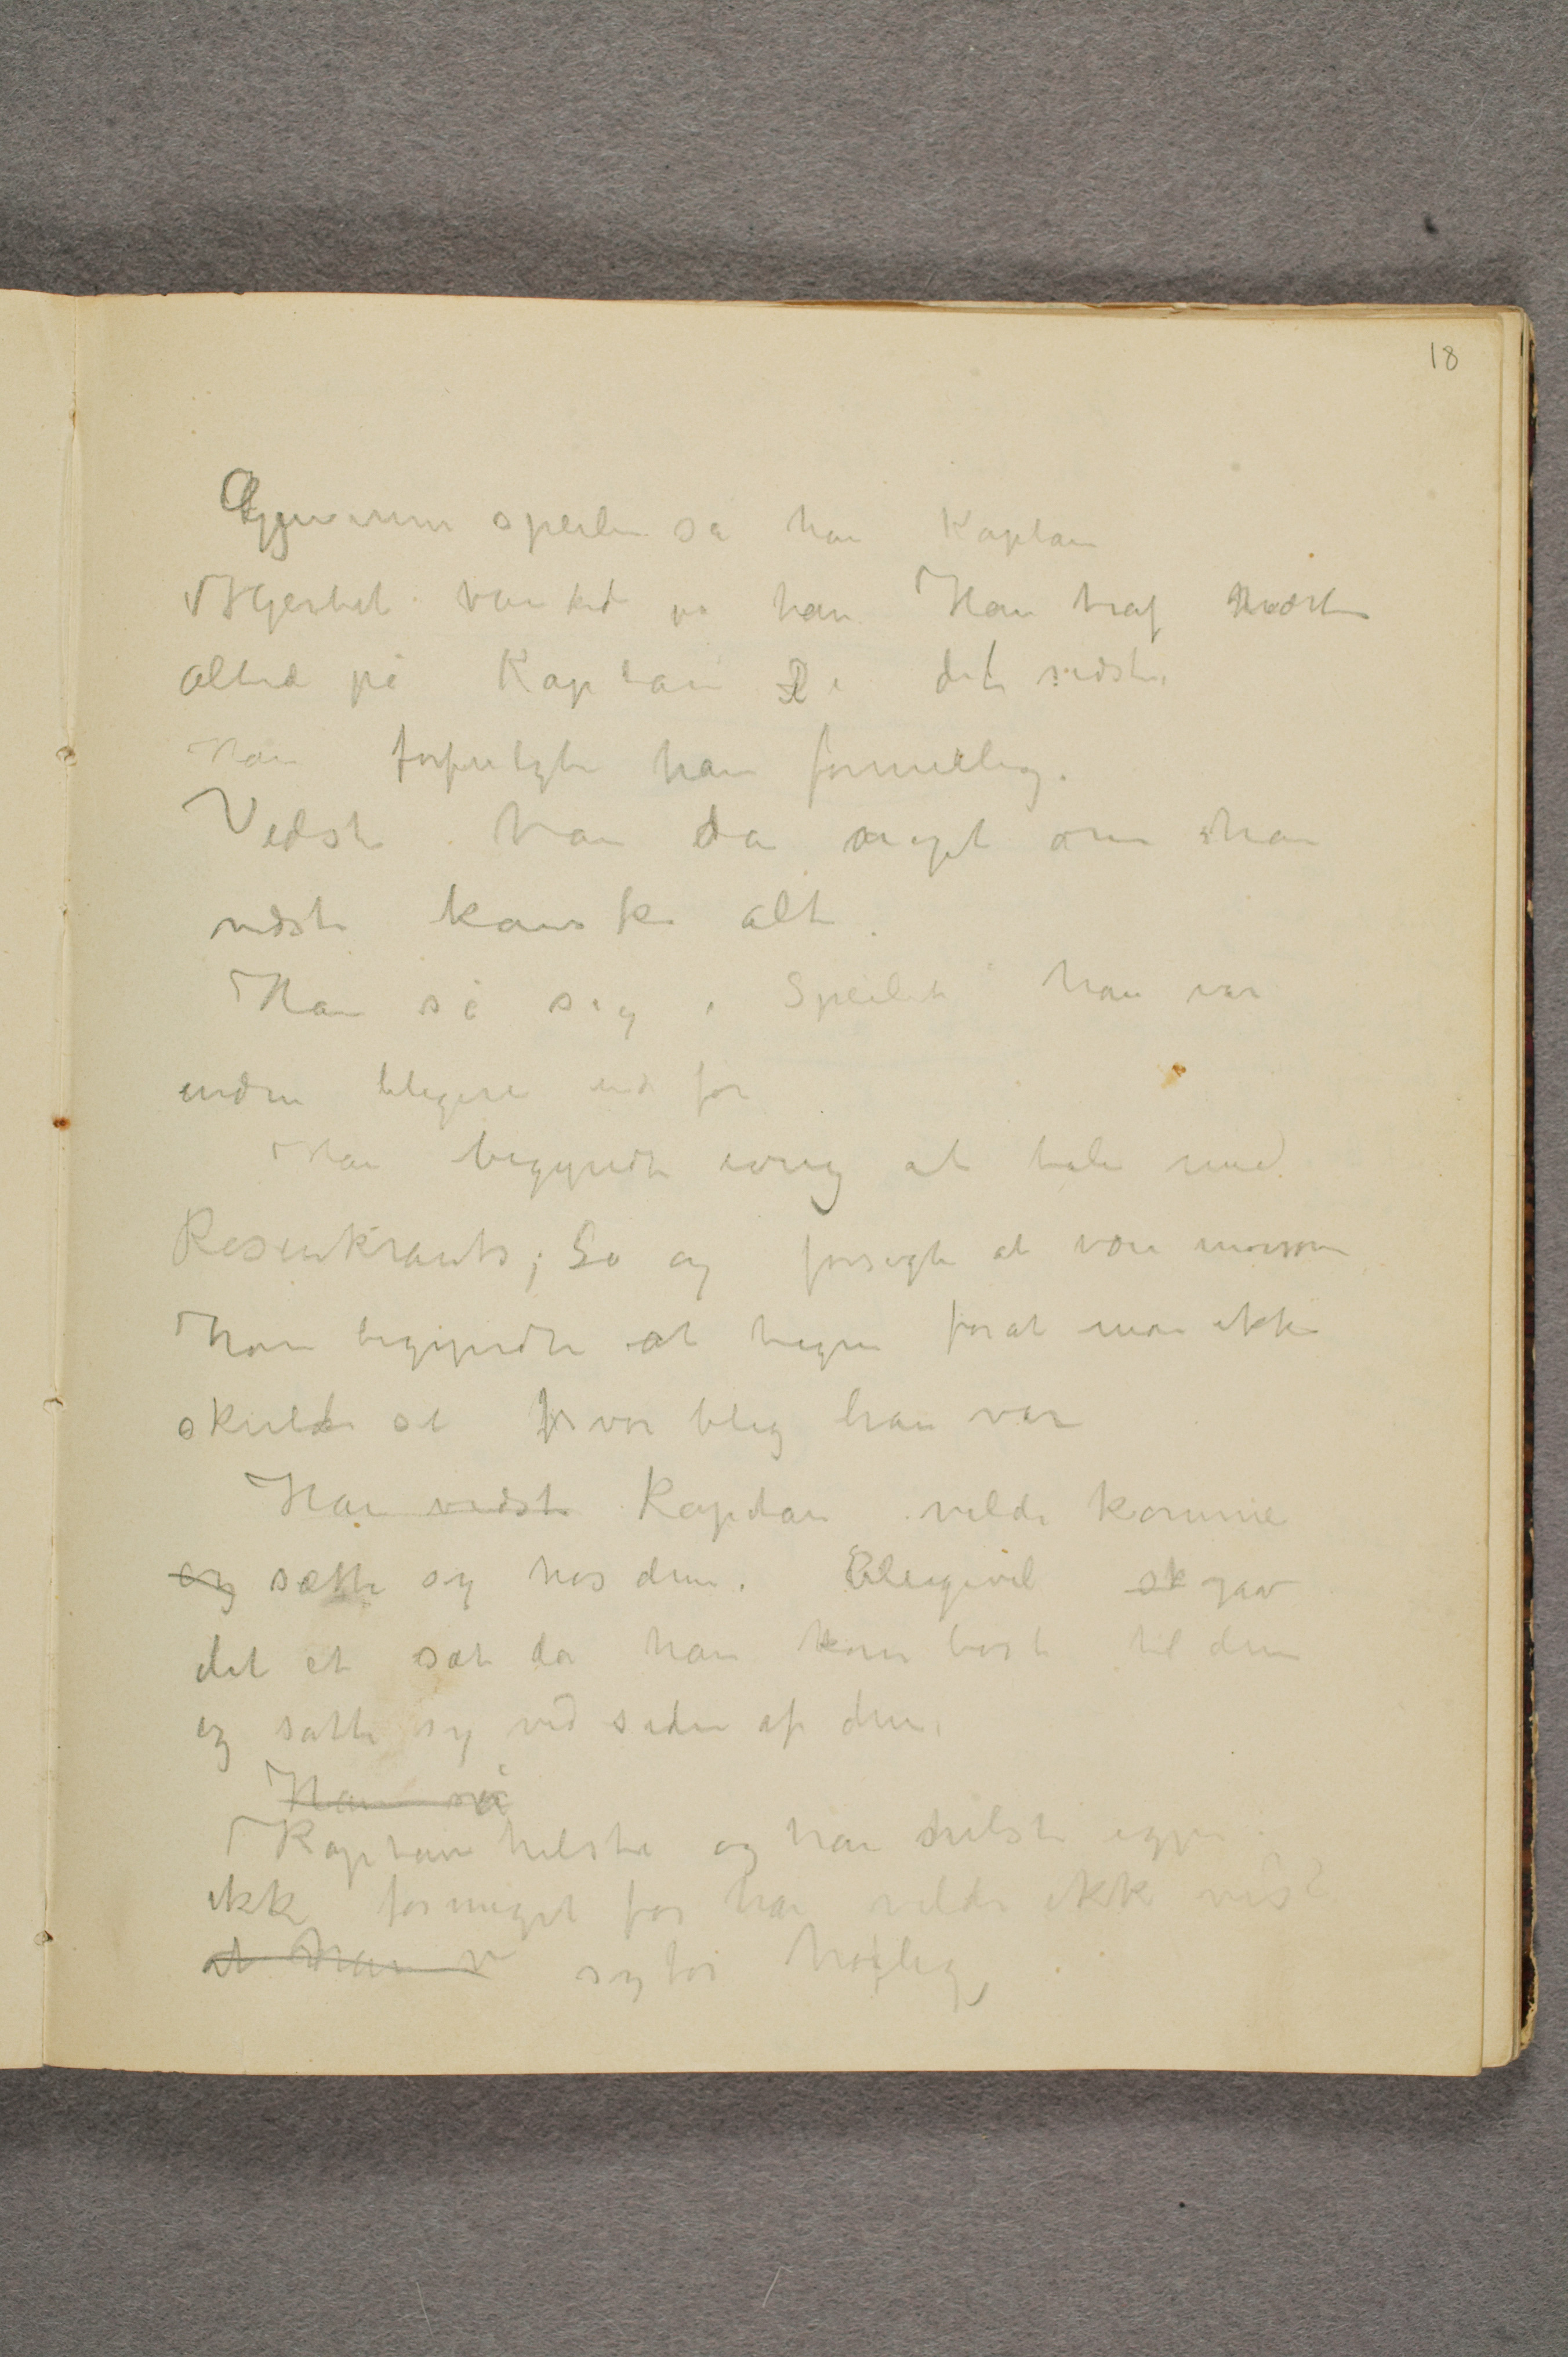 18
Gjennem speilen så han Kaptain
stirred på han Han traf næsten
altid på Kaptain i det sidste
Han forfulgte han formelig.
Vidste han da noget om han
vidste kanske alt.
Han så sig i Speilet han var
endnu blegere end før
Han begyndte ivrig at tale med
Rosenkrants; Lo og forsøgte at være morsom
han begyndte at tegne forat man ikke
skulde se hvor bleg han var
Han vidste Kaptain vilde komme
og sætte sig hos dem. Alligevel sk gav
det et sæt da han kom bort til dem
og satte sig ved siden af dem.
Han så
Kaptain hilste og han hilste igjen
ikke formeget for han vilde ikke vise
at han v sig for høflig